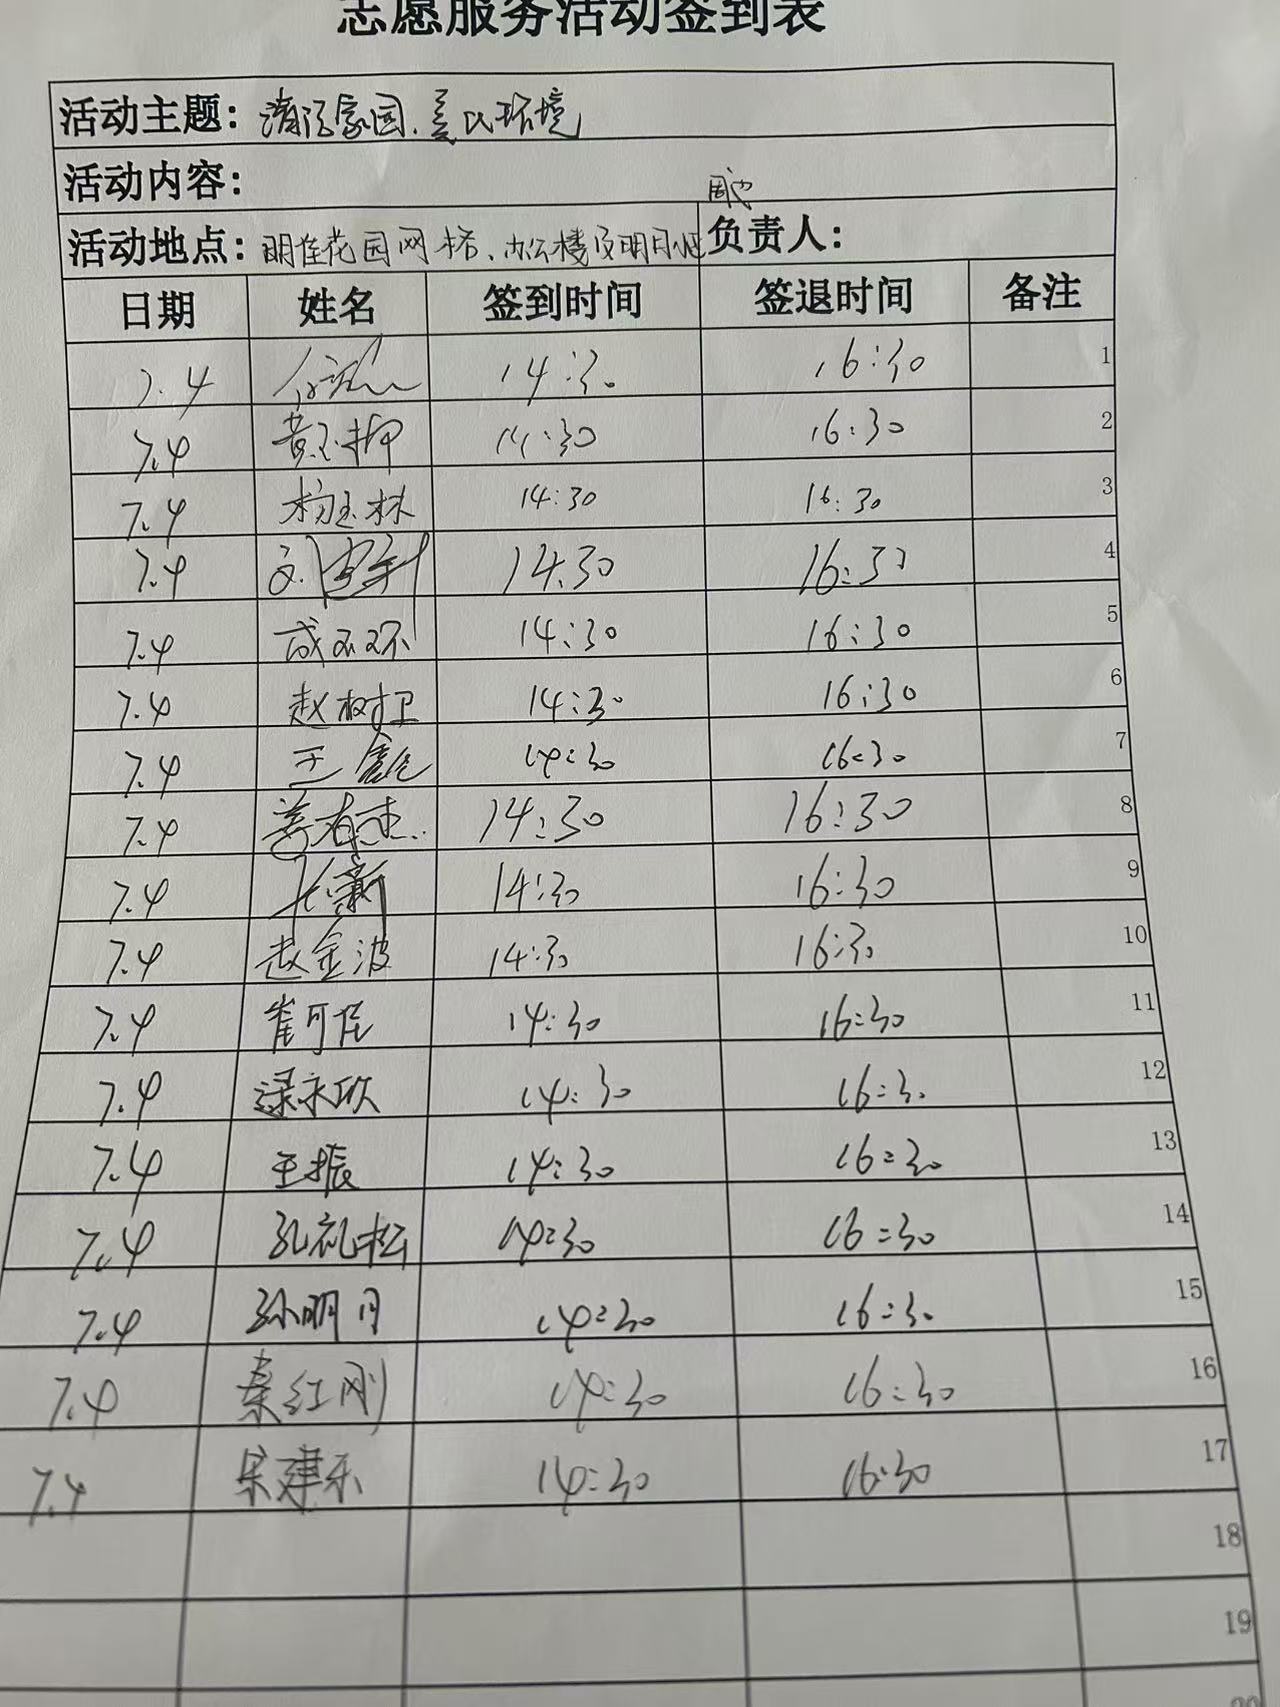 志愿服务活动签到表
活动主题：清洁家园.美化环境
活动内容：
周边
活动地点：明佳花园网格、办公楼及明月小区 负责人：
日期 姓名 签到时间 签退时间 备注
7.4 14:30 16:30 1
7.4 黄玉押 14:30 16:30 2
7.4 杨玉林 14:30 16:30 3
7.4 14:30 16:30 4
7.4 成双环 14:30 16:30 5
7.4 赵树卫 14:30 16:30 6
7.4 王鑫 14:30 16:30 7
7.4 姜有忠 14:30 16:30 8
7.4 14:30 16:30 9
7.4 赵金波 14:30 16:30 10
7.4 崔可佳 14:30 16:30 11
7.4 逯永欣 14:30 16:30 12
7.4 王振 14:30 16:30 13
7.4 孔礼松 14:30 16:30 14
7.4 孙明月 14:30 16:30 15
7.4 秦红刚 14:30 16:30 16
7.4 宋建乐 14:30 16:30 17
18
19
20